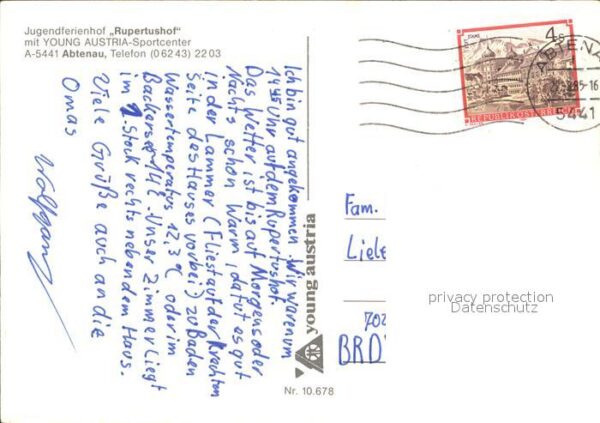 Jugendferienhof „Rupertushof"
mit YOUNG AUSTRIA-Sportcenter
A-5441 Abtenau, Telefon (0 62 43) 22 03
Ich bin gut angekommen. Wir waren um
14 45 Uhr auf dem Rupertushof.
Das Wetter ist bis auf Morgens oder
Nachts schon Warm, da tut es gut
in der Lammer (Fliest auf der
Seite des Hauses vorbei) zu Baden
Wassertemperatur 12,3°C oder im
14°C. Unser Zimmer liegt
im 1 Stock rechts neben dem Haus.
Viele Grüße auch an die
Omas
Wolfgang
young austria
Nr. 10.678
4S
REPUBLIK ÖSTERREICH
ABTENAU
85-16
5441
Fam.
Liele
702
BRD
privacy protection
Datenschutz